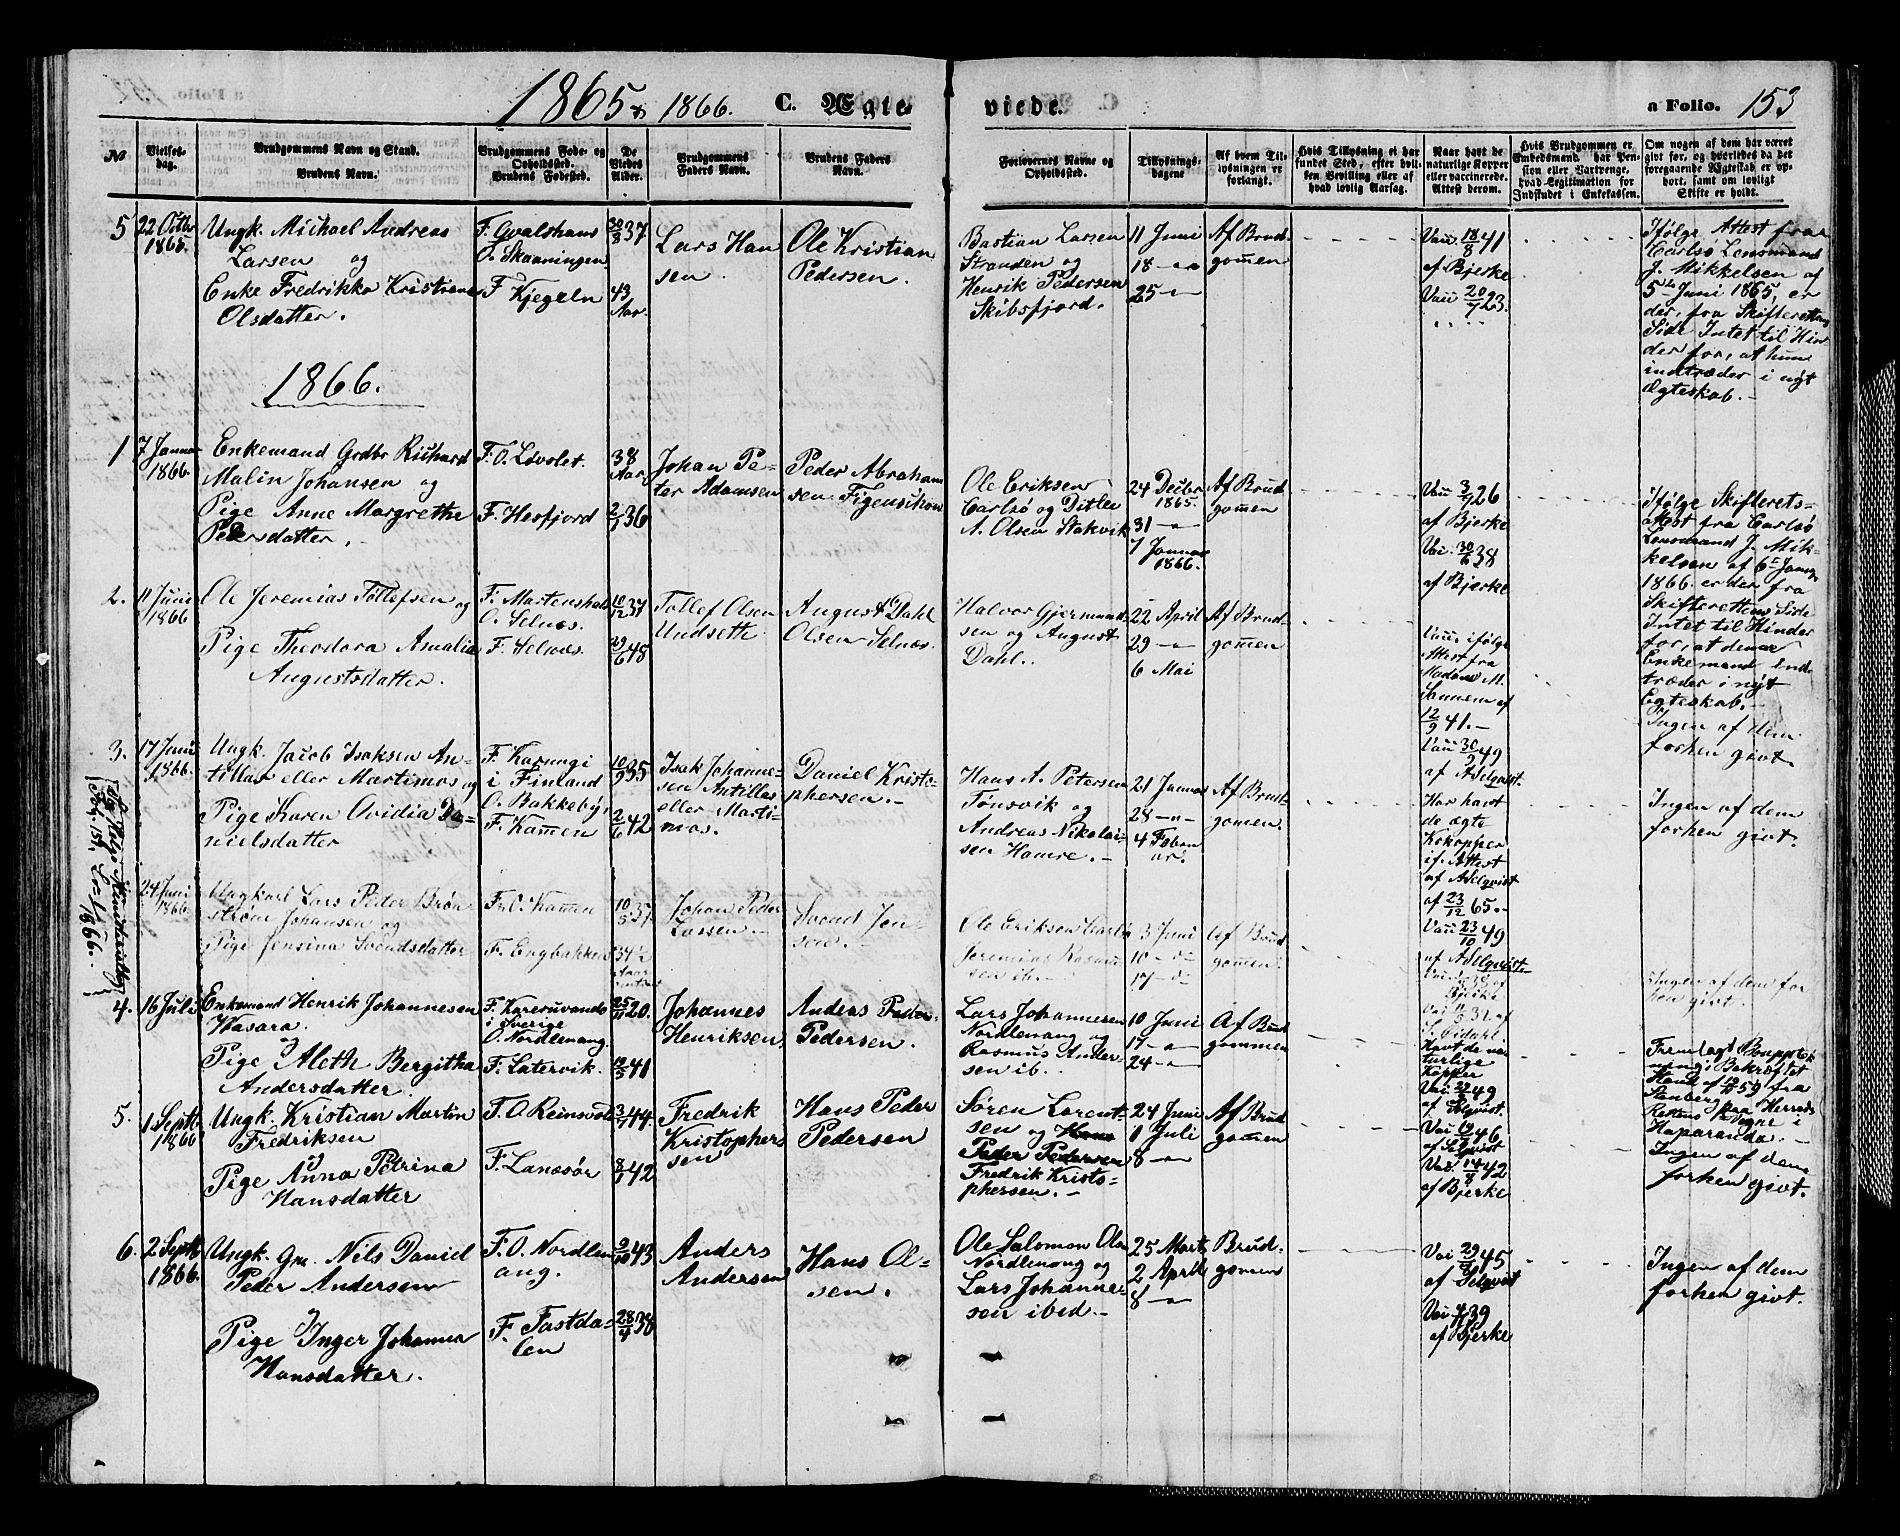 1865 & 1866. C. Ægte viede. a Folio. 153
№
Vielses-
dag.
Brudgommens Navn og Stand.
Brudens Navn.
Brudgommens Føde- og
Opholdssted.
Brudens Fødested.
De
Viedes
Alder.
Brudgommens
Faders Navn.
Brudens Faders
Navn.
Forlovernes Navne og
Opholdssted.
Tillysnings-
dagene
Af hvem Til-
lysningen er
forlangt.
Hvis Tillysning ei har
fundet Sted, efter hvil-
ken Bevilling eller af
hvad lovlig Aarsag.
Naar havt de
naturlige Kopper
eller vaccinerede.
Attest derom.
Hvis Brudgommen er
Embedsmand, har Pen-
sion eller Vartpenge,
hvad Legitimation for
Indskudet i Enkekassen.
Om nogen af dem har været
givt før, og hvorledes da det
foregaaende Ægteskab er op-
hørt, samt om lovligt
Skifte er holdt.
5
22 Octbr
1865.
Ungk. Michael Andreas
Larsen og
Enke Fredrikka Kristiane
Olsdatter.
F. Gvalshaus
O. Skaaningen
F. Kjegeln
30/3 37
43
Aar.
Lars Han
sen.
Ole Kristian
Pedersen.
Bastian Larsen
Stranden og
Henrik Pedersen
Skibsfjord.
11 Juni
18 - "
25 - "
Af Brud-
gomen
Vac. 18/8 41
af Bjerke
Vac. 20/7 23.
Ifølge Attest fra
Carlsø Lensmand
J. Mikkelsen af
5te Juni 1865, er
der, fra Skifterettens
Side Intet til Hin
der for, at hun
indtræder i nyt
Ægteskab. -
1866.
1
7 Januar
1866.
Enkemand Grdbr Richard
Malin Johansen og
Pige Anne Margrethe
Pedersdatter.
F. O. Løvolet.
F. Hesfjord
38
Aar
2/1 36
Johan Pe-
ter Adamsen
Peder Abraham
sen Figenschou
Ole Eriksen
Carlsø og Ditlev
A. Olsen Stakvik
24 Decbr
1865.
31 - "
7 Januar
1866.
Af Brud
gomen
Vac 3/7 26
af Bjerke
Vac. 30/6 38
af Bjerke
Ifølge Skifterets-
attest fra Carlsø
Lensmand J. Mik-
kelsen af 6te Janr
1866. er der fra
Skifterettens Side
Intet til Hinder
for, at denne
Enkemand ind-
træder i nyt
Egteskab. -
2.
11 Juni
1866
Ole Jeremias Tollefsen og
Pige Theodora Amalia
Augustsdatter.
F. Martenshals
O. Selnæs.
F. Selnæs.
10/12 37
29/6 48
Tollef Olsen
Undseth.
August Dahl
Olsen Selnæs.
Halvor Gjermund-
sen og August
Dahl.
22 April
29 - "
6 Mai
Af Brud
gomen
Vacc. ifølge
Attest fra
Madam M.
Sannem af
12/9 41. -
Vacc 30/9 49
af A Selqvist.
Ingen af dem
forhen givt.
3.
17 Juni
1866.
Ungk. Jacob Isaksen An-
tillas eller Martimos og
Pige Karen Ovidia Da-
nielsdatter
F. Karungi
i Finland
O. Bakkebÿ.
F. Kamen
10/9 35
2/6 42
Isak Johanne-
sen Antillas
eller Marti-
mos.
Daniel Kristo-
phersen. -
Hans A. Petersen
Tønsvik og
Andreas Nikolai-
sen Hamre. -
21 Januar
28 - " -
4 Febru
ar.
Af Brud-
gomen.
Har havt
de ægte
Kokopper
if. Attest
af A Selqvist
af 23/12 65. -
Vacc 23/10 49
af A Selqvist
Ingen af dem
forhen givt.
24 Juni
1866
Ungkarl Lars Peder Brøn
strøm Johansen og
Pige Jensina Svendsdatter
F. O. Kamen
F. Engbakken
10/5 37
34 1/2
Johan Peder
Larsen.
Svend Jen-
sen.
Ole Eriksen Carlsø
Jeremias Rasmus
sen ib. -
3 Juni
10 - d"
17 - d"
Af Brud
gomen.
Ingen af dem for
hen givt.
1866.
4.
16 Juli
Enkemand Henrik Johannesen
Wasara.
og
Pige Aleth Bergitha
Andersdatter.
F. Karesuvando
i Sverige
O. Nordlenang
F. Latervik.
25/11 20.
12/3 41
Johannes
Henriksen
Anders Peder-
Pedersen.
Lars Johannesen
Nordlenang og
Rasmus Ander-
sen ib.
10 Juni
17 - "
24 - "
Af Brud
gommen
Havt de na-
turlige
Kopper
Vac 49
af Selqvist.
Haparanda. -
5.
1 Septbr
1866
Ungk. Kristian Martin
Fredriksen
og
Pige Anna Petrina
Hansdatter
F. O. Reinsvold
F. Lanesør
3/7 44
8/7 42
Fredrik
Kristophers
sen
Hans Peder
Pedersen
Søren Lorent-
sen og
Peder Pedersen
Fredrik Kristo-
phersen. -
24 Juni
1 Juli
8 - "
Af Brud
gomen
Vac 46
af Selqvist
Vac. 14/8 42
af Bjerke
Ingen af dem
forhen givt.
6.
2 Septbr
1866.
Ungk. Gm. Nils Daniel
Peder Andersen
og
Pige Inger Johanna
Hansdatter.
F. O. Nordlen
ang.
F. Fastda-
len
9/10 43
28/4 38
Anders
Andersen
Hans Ol-
sen.
Ole Salomon Olsen
Nordlenang og
Lars Johanne-
sen ibid. -
25 Marts
2 April
8 - "
Brud-
gomens
Vac 29/8 45
af Selqvist
Vac 39
af Bjerke
Ingen af dem
forhen givt.